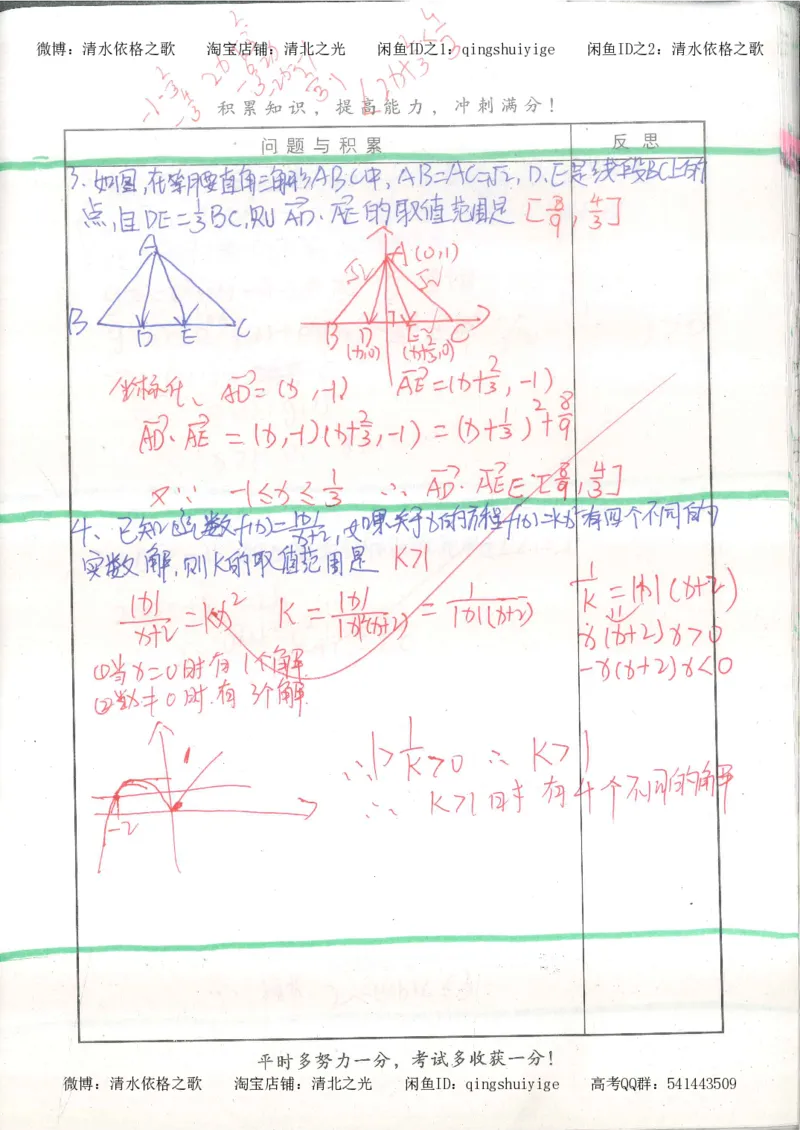 微博：清水依格之歌 淘宝店铺：清北之光 闲鱼ID之1：qingshuiyige 闲鱼ID之2：清水依格之歌
积累知识，提高能力，冲刺满分！
问题与积累 反思
3、如图,在等腰直角三角形ABC中, AB=AC=√2, D、E是线段BC上的
点,且DE=1/3BC,则AD·AE的取值范围是 [8/9, 4/3]
A A(0,1)
√2 √2
B D E C B D 1 E C
(x,0) (x+2/3,0)
坐标化、AD=(x,-1) AE=(x+2/3,-1)
AD·AE=(x,-1)(x+2/3,-1)=(x+1/3)²+8/9
又∵ -1≤x≤1/3 ∴AD·AE∈[8/9,4/3]
4、已知函数f(x)=|x|/x+2,如果关于x的方程f(x)=kx²有四个不同的
实数解,则K的取值范围是 K>1
|x|/x+2=Kx² K=|x|/|x|²(x+2)=1/|x|(x+2)
1/K=|x|(x+2)
x(x+2) x>0
-x(x+2) x<0
①当x=0时有1个解
②当x≠0时.有3个解
-2 1
∴1>1/K>0 ∴K>1
∴K>1时有4个不同的解
平时多努力一分，考试多收获一分！
微博：清水依格之歌 淘宝店铺：清北之光 闲鱼ID：qingshuiyige 高考QQ群：541443509